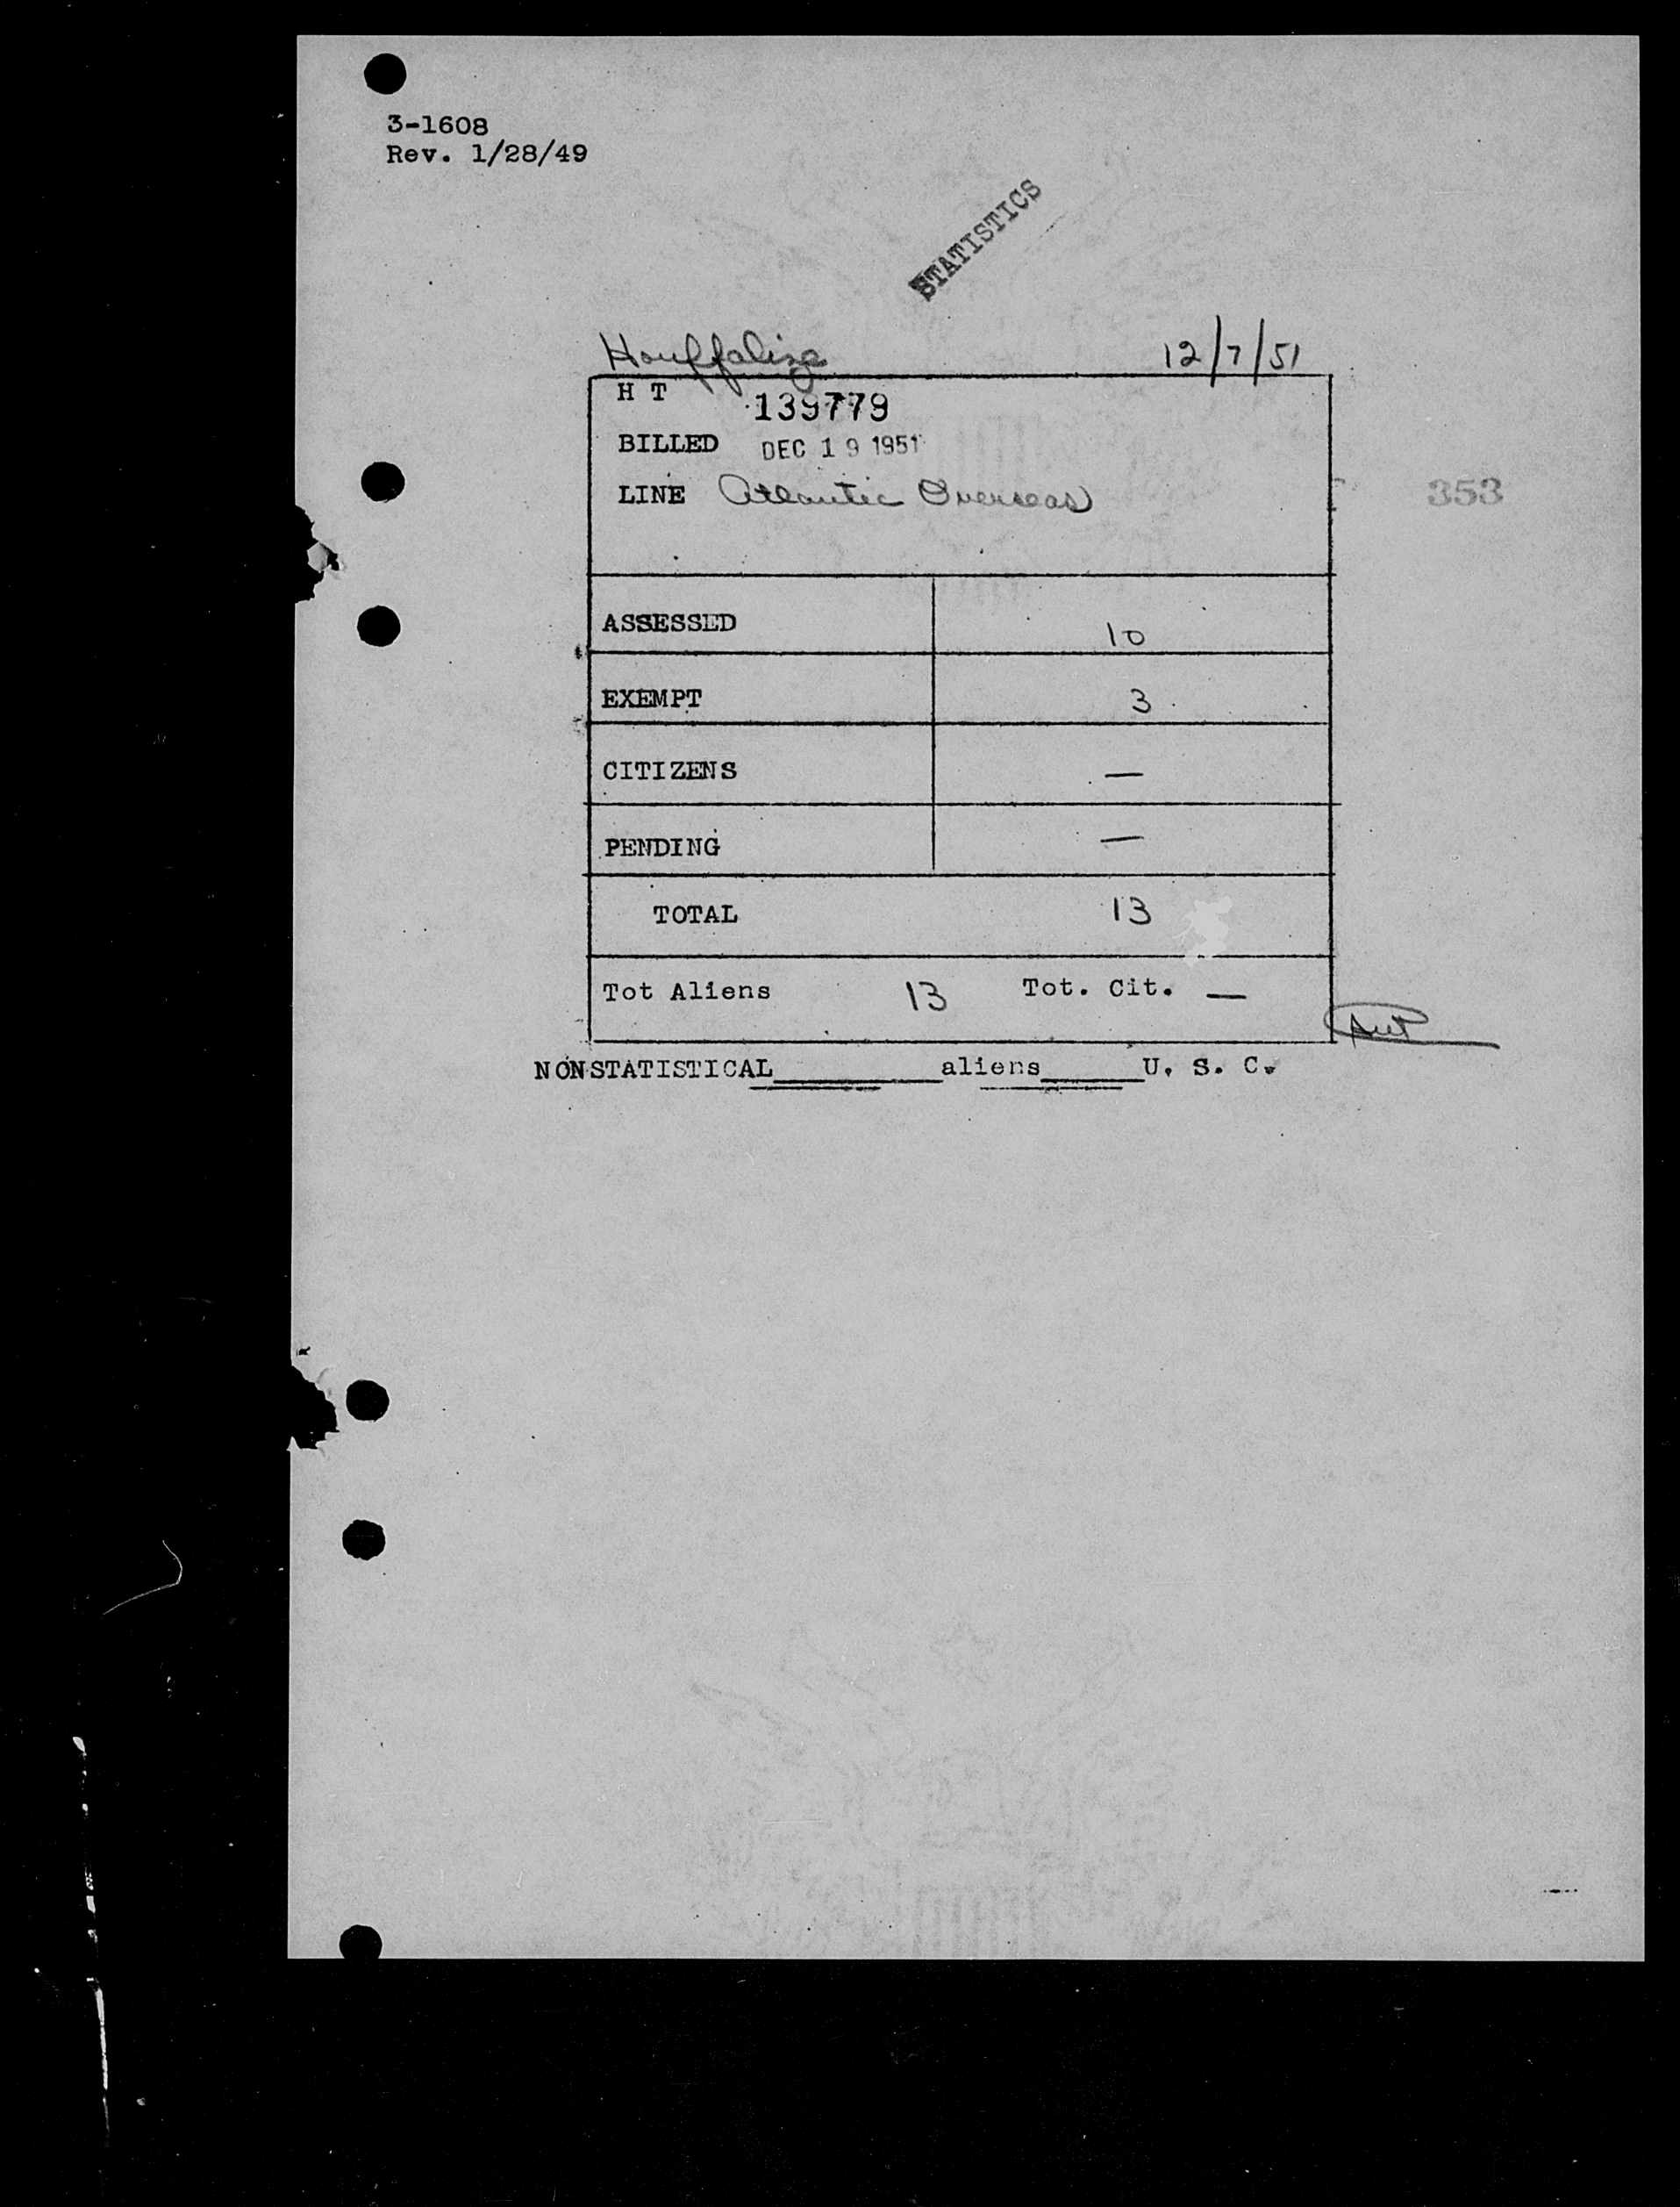 3-1608
Rev. 1/28/49
STATISTICS
Houffalize 12/7/51
H T 139779
BILLED DEC 19 1951
LINE Atlantic Overseas
353
ASSESSED 10
EXEMPT 3
CITIZENS —
PENDING —
TOTAL 13
Tot Aliens 13 Tot. Cit. —
NONSTATISTICAL__________aliens______U. S. C.